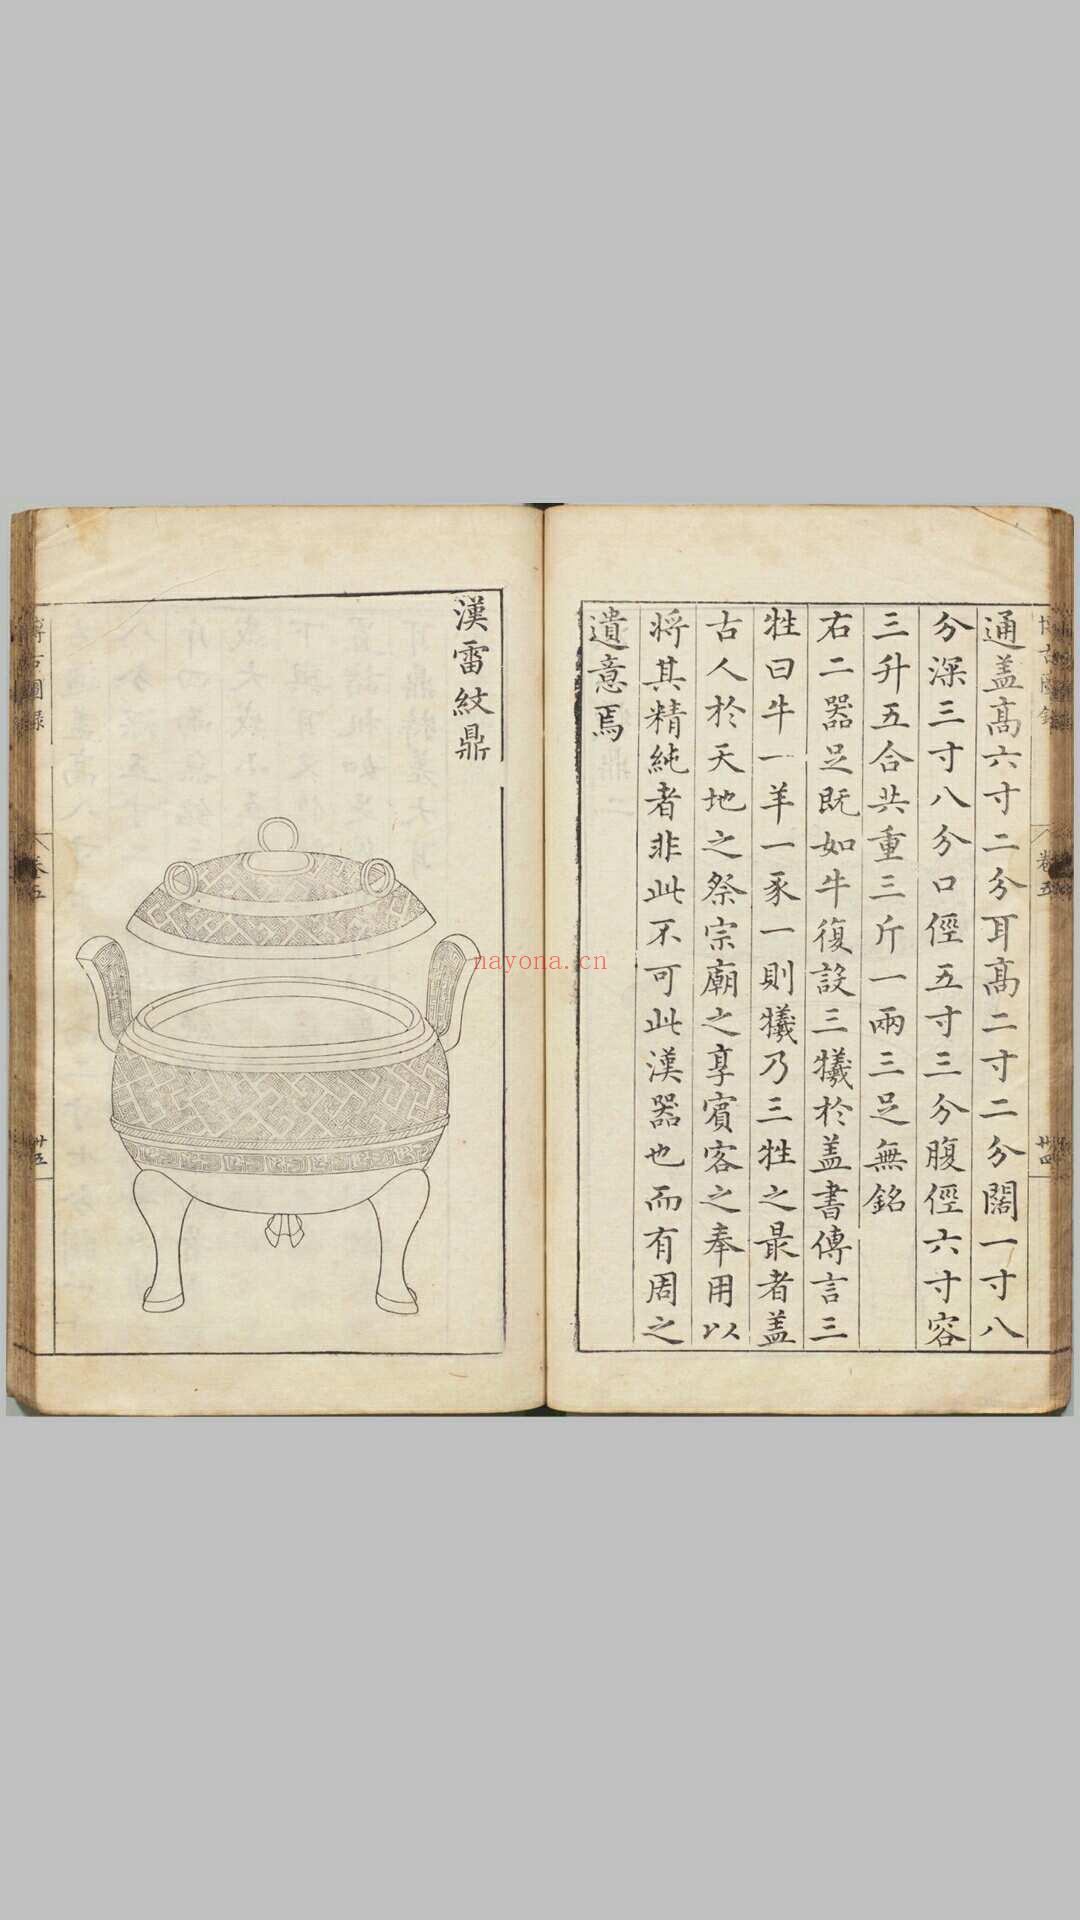 通盖髙六寸二分耳髙二寸二分闊一寸八
分深三寸八分口徑五寸三分腹徑六寸容
三升五合共重三斤一兩三足無銘
右二器足既如牛復設三犧於盖書傳言三
牲曰牛一羊一豕一則犧乃三牲之最者盖
古人於天地之祭宗廟之享賓客之奉用以
將其精純者非此不可此漢器也而有周之
遺意焉
卷五
廿四
漢雷紋鼎
博古圖錄
卷五
廿五
nayona.cn